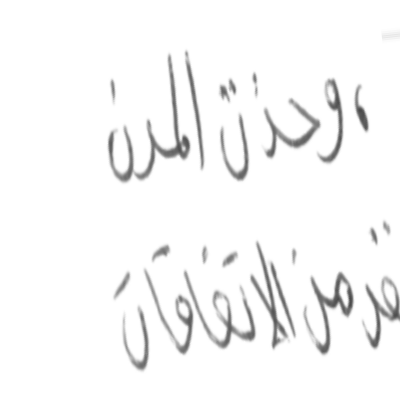 ، وحذت المدن
من الاتفاقات